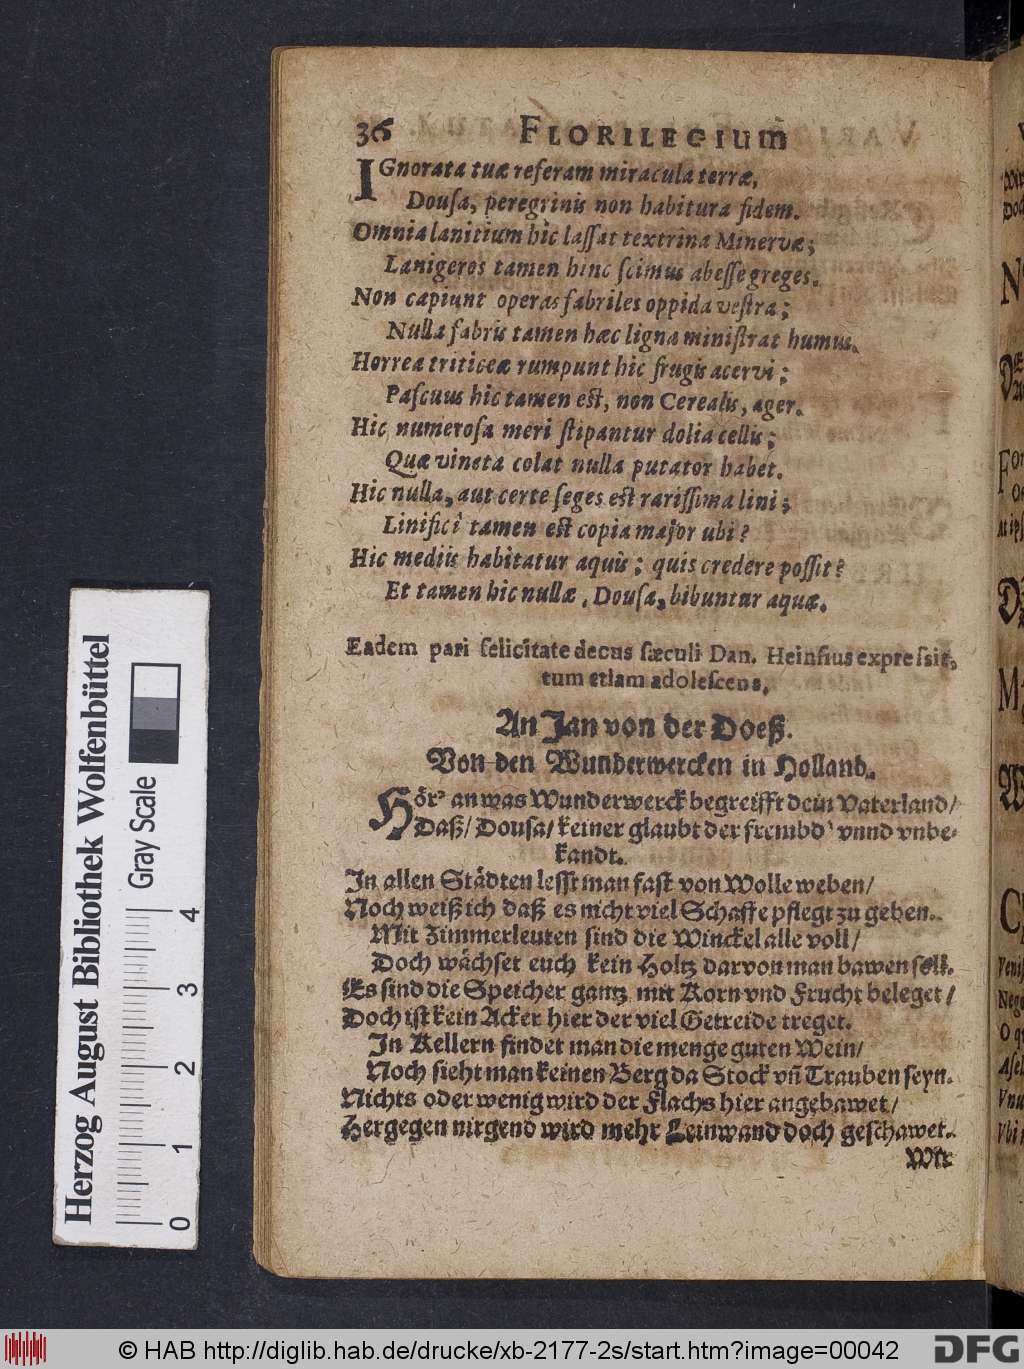 36 FLORILEGIUM
IGnorata tuæ referam miracula terræ,
Dousa, peregrinis non habitura fidem.
Omnia lanitium hîc lassat textrina Minervæ;
Lanigeros tamen hinc scimus abesse greges.
Non capiunt operas fabriles oppida vestra;
Nulla fabris tamen hæc ligna ministrat humus.
Horrea triticeæ rumpunt hic frugis acervi;
Pascuus hic tamen est, non Cerealis, ager.
Hic numerosa meri stipantur dolia cellis;
Quæ vineta colat nulla putator habet.
Hic nulla, aut certe seges est rarissima lini;
Linificî tamen est copia major ubi?
Hic mediis habitatur aquis; quis credere possit?
Et tamen hic nullæ, Dousa, bibuntur aquæ.
Eadem pari felicitate decus sæculi Dan. Heinsius expressit,
tum etiam adolescens,
An Jan von der Doeß.
Von den Wunderwercken in Holland.
Hör' an was Wunderwerck begreifft dein Vaterland/
Daß/ Dousa/ keiner glaubt der frembd' vnnd vnbe-
kandt.
In allen Städten lesst man fast von Wolle weben/
Noch weiß ich daß es nicht viel Schaffe pflegt zu geben.
Mit Zimmerleuten sind die Winckel alle voll/
Doch wächset euch kein Holtz darvon man bawen soll.
Es sind die Speicher gantz mit Korn vnd Frucht beleget/
Doch ist kein Acker hier der viel Getreide treget.
In Kellern findet man die menge guten Wein/
Noch sieht man keinen Berg da Stock vñ Trauben seyn.
Nichts oder wenig wird der Flachs hier angebawet/
Hergegen nirgend wird mehr Leinwand doch geschawet.
Wir
Herzog August Bibliothek Wolfenbüttel
Gray Scale
0 1 2 3 4
© HAB http://diglib.hab.de/drucke/xb-2177-2s/start.htm?image=00042
DFG